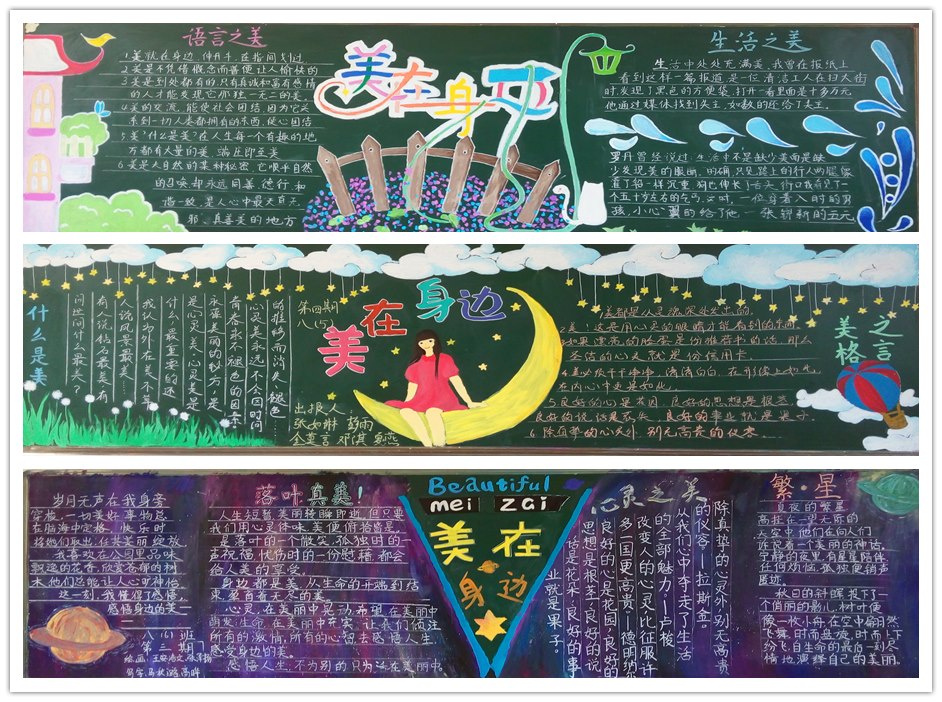 语言之美
1 美就在身边，伸开手，在指间划过
2 美是不凭借概念而普便让人愉快的
3 美是到处都有的，只有真诚和富有感情
的人才能发现它那独一无二的美
4 美的交流，能使社会团结，因为它关
系到一切人类都拥有的东西，使心团结
5 美？什么是美？在人生每一个有趣的地
方都有大量的美
6 美是大自然的某种秘密，它眼乎自然
的召唤却永远同善德行和
谐一致，是人心中最天真无
邪、真善美的地方
美在身边
生活之美
生活中处处充满美，我曾在报纸上
看到这样一篇报道：是一位清洁工人在扫大街
时，发现了黑色的方便袋，打开一看里面是十多万元
他通过媒体找到失主，如数的还给了失主。
罗丹曾经说过：生活中不是缺少美而是缺
少发现美的眼睛
个五十岁左右的乞丐，这时，一位身着入时的男
孩，小心翼翼的给了他一张崭新的五元
什么是美
问世间什么最美？
有人说钻石最美，有
人说风景最美……
我认为外在美不算
什么，最重要的还
是心灵美，心灵美是
永葆美丽的秘方，是
青春永不褪色的因素，
心灵美永远不会因时间
的推移而消失、褪色
第四期
八(5)
美在身边
出报人
之言
美格
1 美都是从灵魂深处发出的。
2 美：这是用心灵的眼睛才能看到的东西
如果漂亮的脸蛋是份推荐书的话，那么
圣洁的心灵就是份信用卡。
4 美必须干干净净，清清白白，在形像上如此，
在内心中更是如此。
5 良好的心是花园，良好的思想是根茎
良好的说话是花朵，良好的事业就是果子
6 除真挚的心灵外，别无高贵的仪容
岁月无声在我身旁
穿梭，一切美好事物总
在脑海中定格，快乐时
将她们取出，任其美丽绽放
我喜欢在公园里品味
飘逸的花香，欣赏各部的树
木，他们总能让人心旷神怡
这一刻，我懂得了感悟，
感悟身边的美一
八(6)班
第三期
落叶真美！
人生短暂，美丽转瞬即逝，但只要
我们用心灵体味，美便俯拾皆是
是落叶的一个微笑，孤独时的一
声祝福，忧伤时的一份慰藉，都会
给人美的享受。
身边都是美，从生命的开端到结
束，至自有着无尽的美。
心灵，在美丽中晃动，希望，在美丽中
萌发，生命，在美丽中充实，让我们倾注
所有的激情，所有的心智去感悟人生，
感受身边的美。
感悟人生，不为别的，只为活在美丽中
Beautiful
mei zai
美在
身边
心灵之美
除真挚的心灵外，别无高贵
的仪容——拉斯金
从我们心中夺走了生活
的全部魅力——卢梭
改变人的心灵比征服许
多一国更高贵——德明纳尔
良好的心是花园，良好的
思想是根茎，良好的说
话是花朵，良好的事
业就是果子。
繁·星
夏夜的繁星
高挂在一望无际的
天空中，他们在向人们
诉说着一个美丽的神话，
宁静的夜里，有星星陪伴，
任何烦恼、孤独便销声
匿迹。
秋日的斜晖投下了一
个俏丽的影儿，树叶便
像一枚小舟，在空中翩然
飞舞，时而盘旋，时而上下
纷飞，自生命的最后一刻尽
情地演绎自己的美丽。